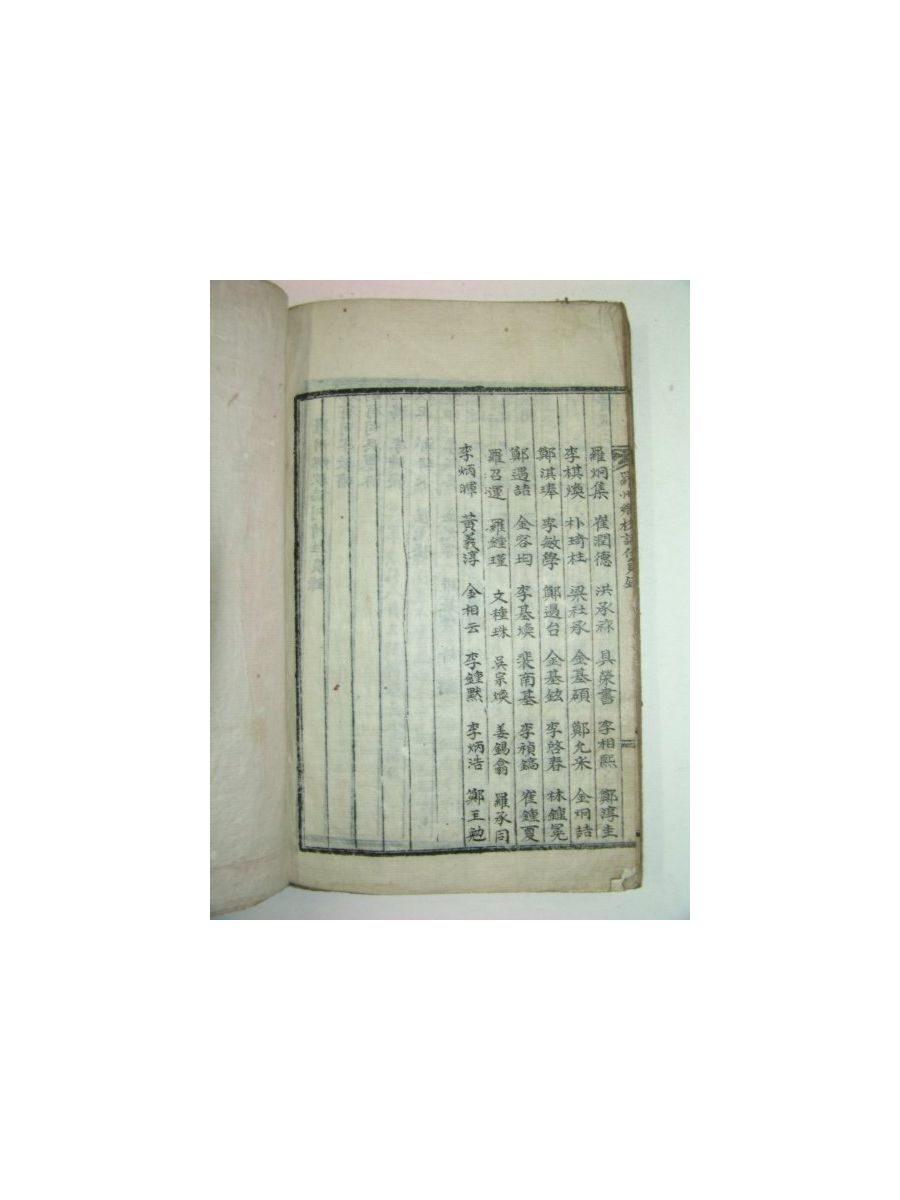 羅州鄕校調任員錄
羅炯集 崔潤德 洪承 具榮書 李相熙 鄭淳圭
李棋煥 朴琦柱 梁社承 金基碩 鄭允采 金炯喆
鄭淇琫 李敏學 鄭遇台 金基鉉 李啓春 林鐘冕
鄭遇喆 金容均 李基煥 裴南基 李禎鎬 崔鍾夏
羅召運 羅鍾瑾 文種珠 吳宗煥 姜錫翕 羅承同
李炳暉 黃義淳 金相云 李鐘默 李炳浩 鄭王勉